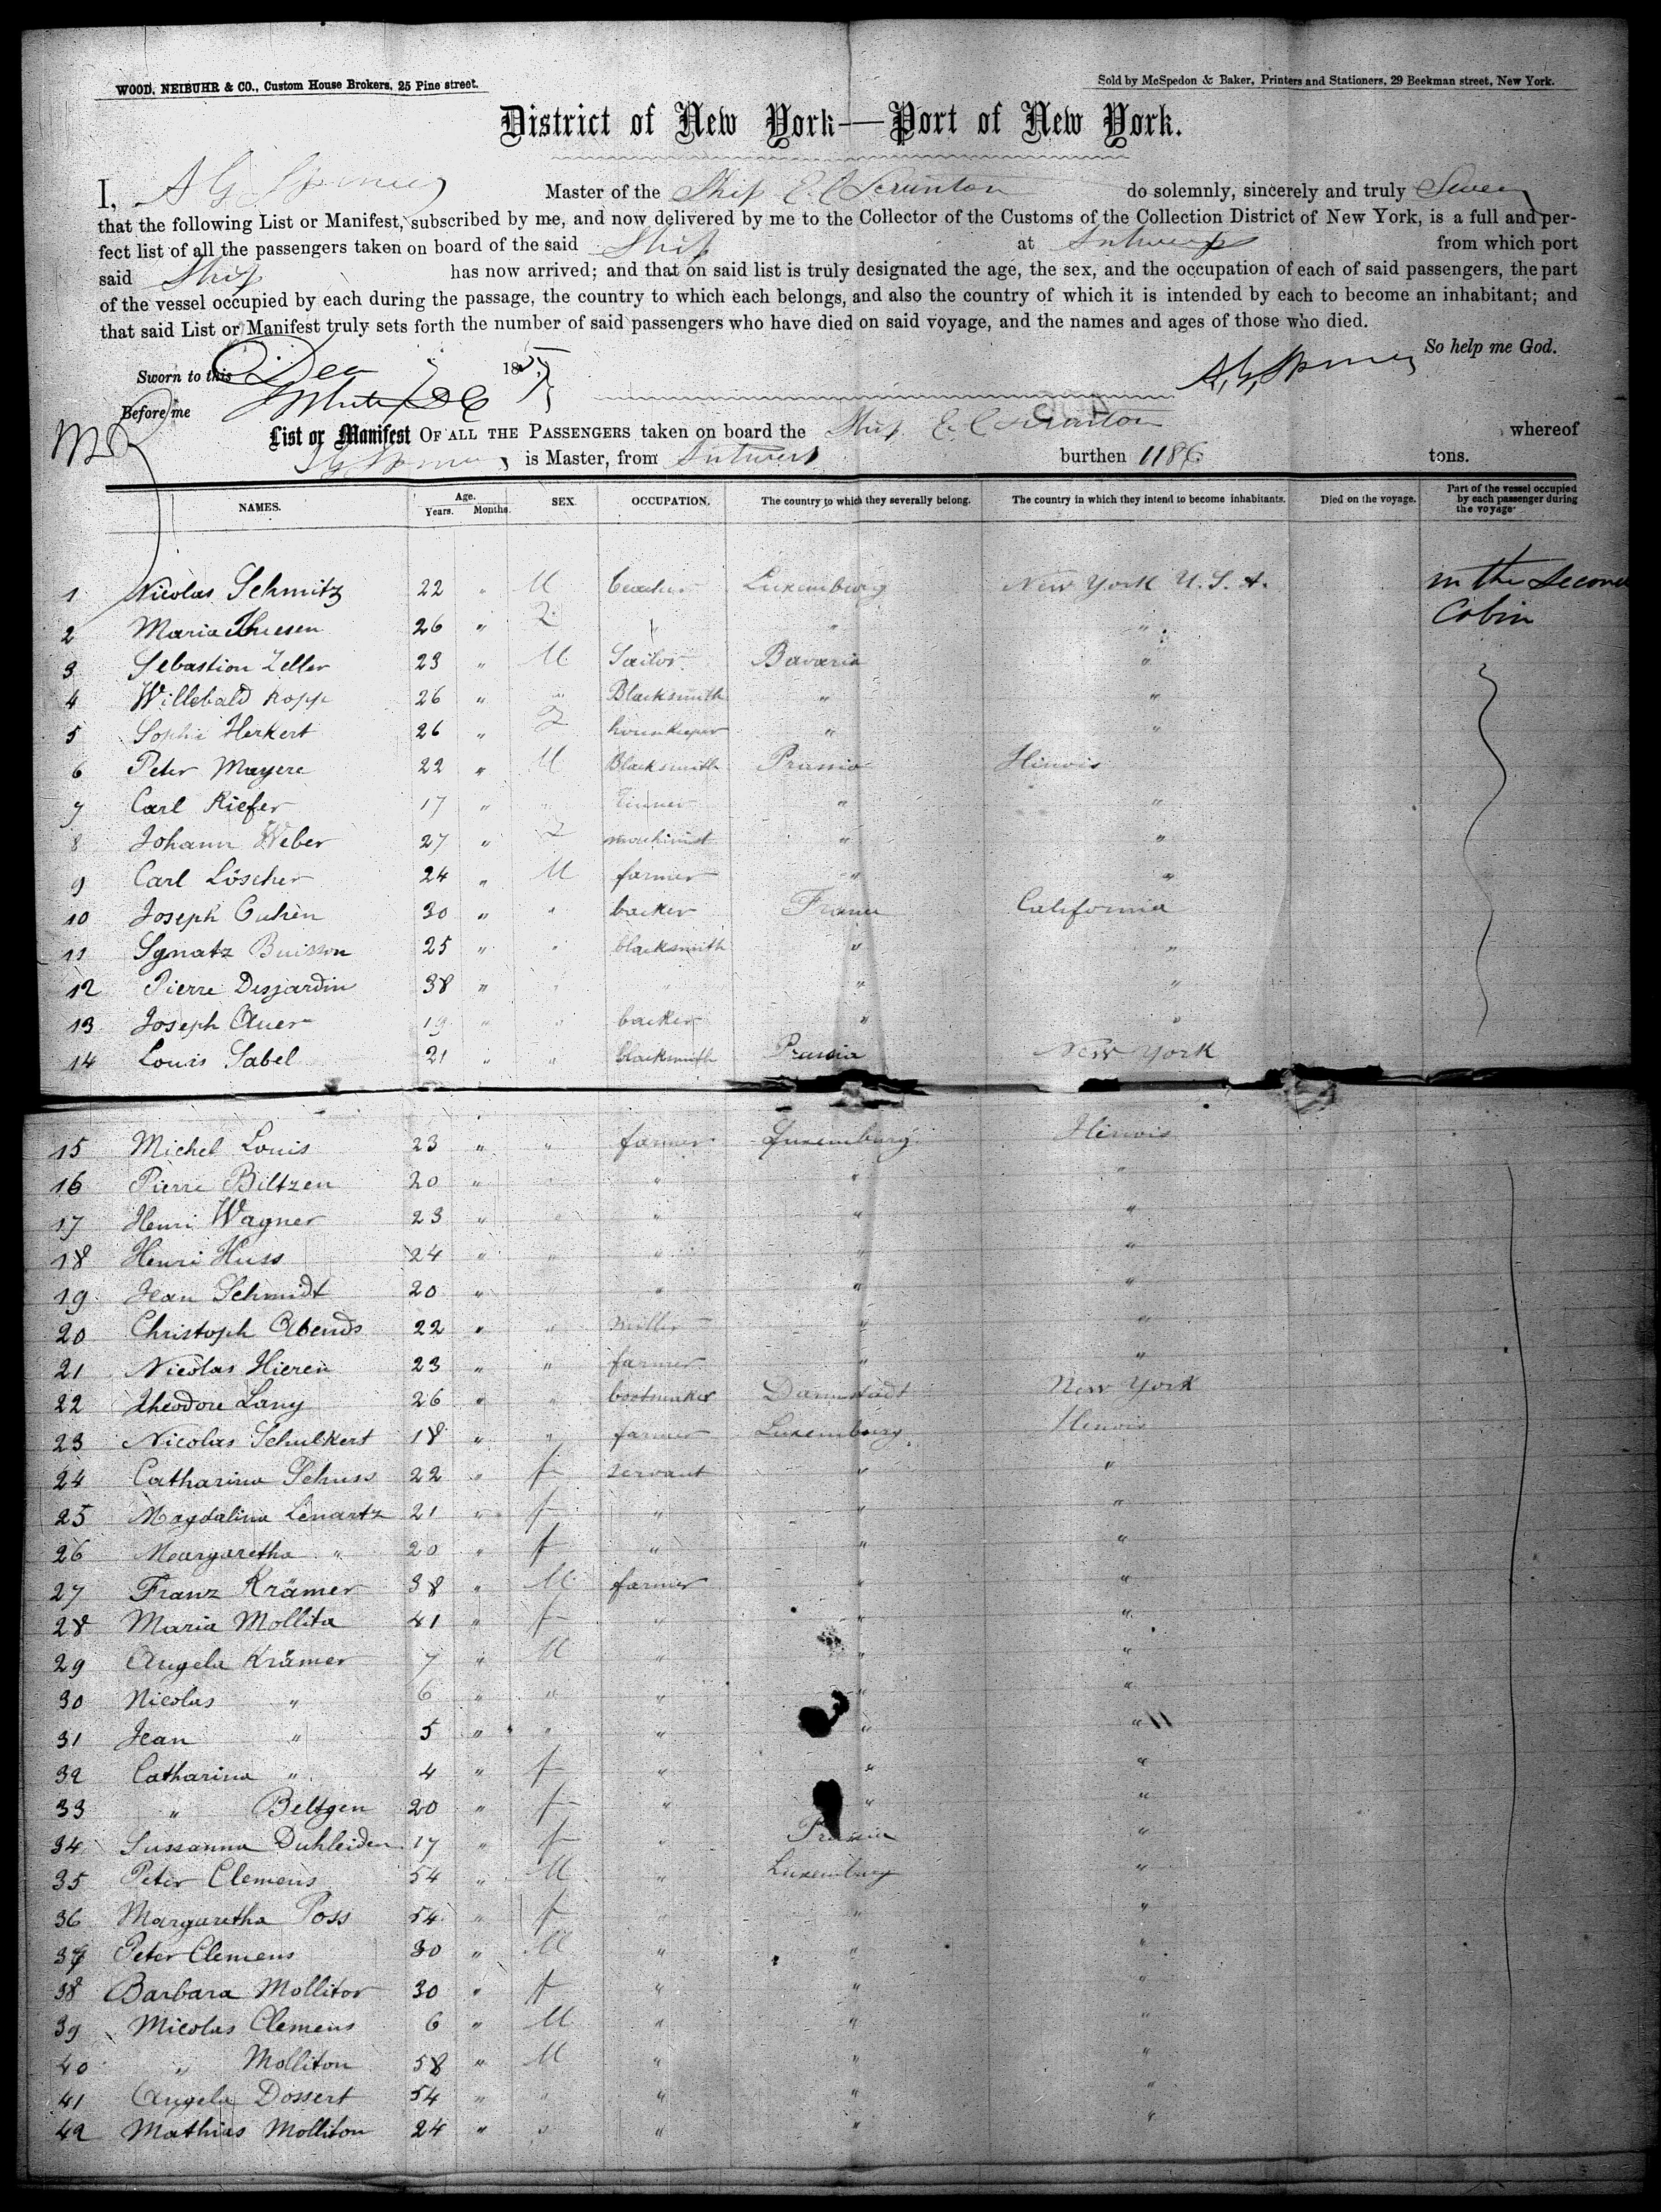 WOOD, NEIBUHR & CO., Custom House Brokers, 25 Pine street.
Sold by McSpedon & Baker, Printers and Stationers, 29 Beekman street, New York.
District of New York—Port of New York.
I, A G Master of the Ship E C Scranton do solemnly, sincerely and truly Swear
that the following List or Manifest, subscribed by me, and now delivered by me to the Collector of the Customs of the Collection District of New York, is a full and per-
fect list of all the passengers taken on board of the said Ship at Antwerp from which port
said Ship has now arrived; and that on said list is truly designated the age, the sex, and the occupation of each of said passengers, the part
of the vessel occupied by each during the passage, the country to which each belongs, and also the country of which it is intended by each to become an inhabitant; and
that said List or Manifest truly sets forth the number of said passengers who have died on said voyage, and the names and ages of those who died.
So help me God.
Sworn to this Dec 18
Before me
List or Manifest OF ALL THE PASSENGERS taken on board the Ship E C Scranton whereof
is Master, from Antwerp burthen 1186 tons.
NAMES. Age. Years. Months. SEX. OCCUPATION. The country to which they severally belong. The country in which they intend to become inhabitants. Died on the voyage. Part of the vessel occupied by each passenger during the voyage
1 Nicolas Schmitz 22 " M Luxemburg New York U.S.A. in the Second
2 Maria Thiesen 26 " " " " Cabin
3 Sebastian Zeller 23 " M Bavaria "
4 Willebald Kopp 26 " " Blacksmith " "
5 Sophie Herkert 26 " " "
6 Peter Mayere 22 " M Blacksmith Prussia Illinois
7 Carl Kiefer 17 " " " "
8 Johann Weber 27 " " "
9 Carl Löscher 24 " M farmer " "
10 Joseph 30 " " backer France California
11 Ignatz Buisson 25 " " blacksmith " "
12 Pierre Desjardin 38 " " " " "
13 Joseph Auer 19 " " backer " "
14 Louis Sabel 21 " " blacksmith Prussia New York
15 Michel Louis 23 " " farmer Luxemburg Illinois
16 Pierre Biltzen 20 " " " " "
17 Henri Wagner 23 " " " " "
18 Henri Huss 24 " " " " "
19 Jean Schmidt 20 " " " " "
20 Christoph Abends 22 " " miller " "
21 Nicolas Hieren 23 " " farmer " "
22 Theodore Lany 26 " " bootmaker Darmstadt New York
23 Nicolas Schulkert 18 " " farmer Luxemburg Illinois
24 Catharina Schuss 22 " f servant " "
25 Magdalina Lenartz 21 " f " " "
26 Margaretha " 20 " f " " "
27 Franz Krämer 38 " M farmer " "
28 Maria Mollita 41 " f " " "
29 Angela Krämer 7 " M " " "
30 Nicolas " 6 " " " " "
31 Jean " 5 " " " " "
32 Catharina " 4 " f " " "
33 " Beltgen 20 " f " " "
34 Sussanna Duhleiden 17 " f " Prussia "
35 Peter Clemens 54 " M " Luxemburg "
36 Margaretha Poss 54 " f " " "
37 Peter Clemens 30 " M " " "
38 Barbara Mollitor 30 " f " " "
39 Nicolas Clemens 6 " M " " "
40 " Molliton 58 " M " " "
41 Angela Dossert 54 " " " " "
42 Mathias Molliton 24 " " " " "